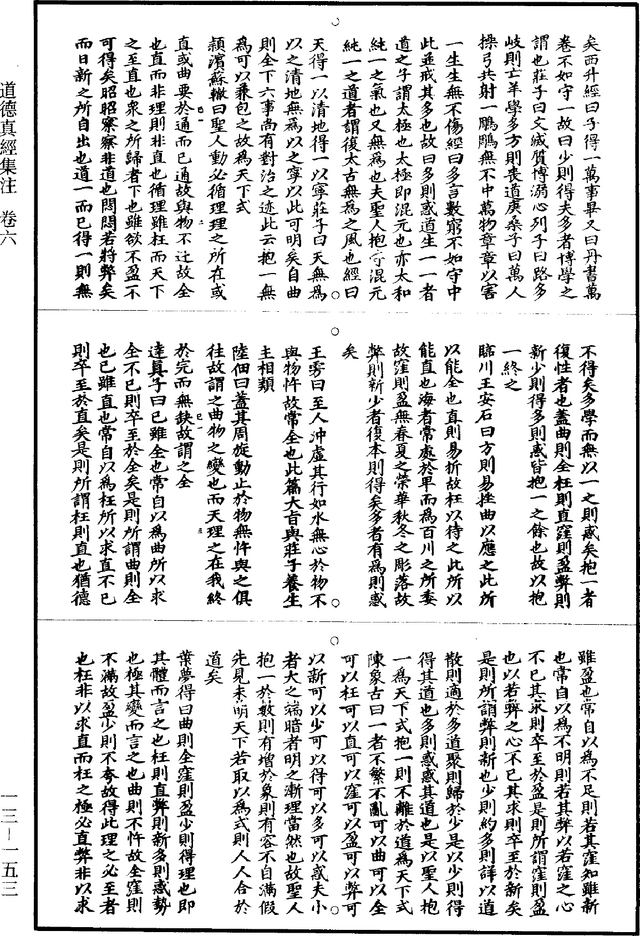 道德真經集注 卷六
一三—一五三
矣西升經曰子得一萬事畢又曰丹書萬
卷不如守一故曰少則得夫多者博學之
謂也莊子曰文滅質博溺心列子曰路多
岐則亡羊學多方則喪道庚桑子曰萬人
操弓共射一鵬鵬無不中萬物章章以害
一生生無不傷經曰多言數窮不如守中
此垂戒其多也故曰多則惑道生一一者
道之子謂太極也太極即混元也亦太和
純一之氣也又無為也夫聖人抱守混元
純一之道者謂復太古無為之風也經曰
天得一以清地得一以寧莊子曰天無為
以之清地無為以之寧以此可明矣自曲
則全下六事尚有對治之迹此云抱一無
為可以兼包之故為天下式
潁濱蘇轍曰聖人動必循理理之所在或
直或曲要於通而已通故與物不迕故全
也直而非理則非直也循理雖枉而天下
之至直也眾之所歸者下也雖欲不盈不
可得矣昭昭察察非道也悶悶若將弊矣
而日新之所自出也道一而已得一則無
不得矣多學而無以一之則惑矣抱一者
復性者也蓋曲則全枉則直窪則盈弊則
新少則得多則惑皆抱一之餘也故以抱
一終之
臨川王安石曰方則易挫曲以應之此所
以能全也直則易折故枉以待之此所以
能直也海者常處於卑而為百川之所委
故窪則盈無春夏之榮華秋冬之彫落故
弊則新少者復本則得矣多者有為則惑
矣
王雱曰至人沖虛其行如水無心於物不
與物忤故常全也此篇大旨與莊子養生
主相類
陸佃曰蓋其周旋動止於物無忤與之俱
往故謂之曲物之變也而天理之在我終
於完而無缺故謂之全
達真子曰已雖全也常自以為曲所以求
全不已則卒至於全矣是則所謂曲則全
也已雖直也常自以為枉所以求直不已
則卒至於直矣是則所謂枉則直也猶德
雖盈也常自以為不足則若其窪知雖新
也常自以為不明則若其弊以若窪之心
不已其求則卒至於盈是則所謂窪則盈
也以若弊之心不已其求則卒至於新矣
是則所謂弊則新也少則約多則詳以道
散則適於多道聚則歸於少是以少則得
得其道也多則惑惑其道也是以聖人抱
一為天下式抱一則不離於道為天下式
陳象古曰一者不繁不亂可以曲可以全
可以枉可以直可以窪可以盈可以弊可
以新可以少可以得可以多可以惑夫小
者大之端暗者明之漸理當然也故聖人
抱一於數則有增於象則有容不自滿假
先見未明天下若取以為式則人人合於
道矣
葉夢得曰曲則全窪則盈少則得理也即
其體而言之也枉則直弊則新多則惑勢
也極其變而言之也曲則不忤故全窪則
不滿故盈少則不夸故得此理之必至者
也枉非以求直而枉之極必直弊非以求